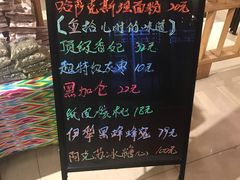 哈萨克斯坦面粉 20元
(重拾儿时的味道)
顶级香妃 32元
超特红枣 10元
黑加仑 22元
纸皮核桃 18元
伊犁黑蜂蜂蜜 79元
阿克苏冰糖心 100元